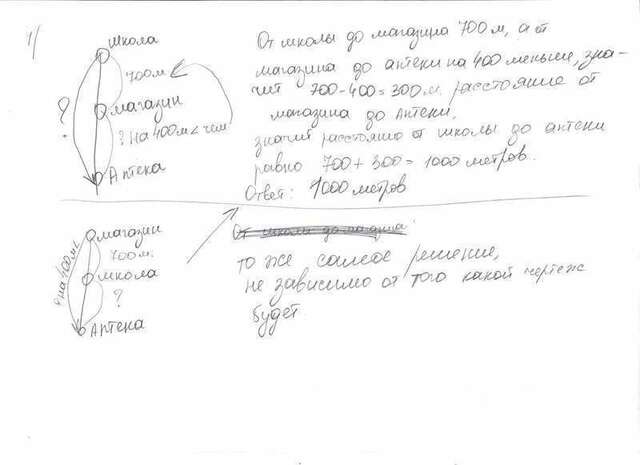 1)
школа
700м
магазин
? на 400м < чем
Аптека
?
От школы до магазина 700м, а от
магазина до аптеки на 400 меньше, зна-
чит 700-400=300м. расстояние от
магазина до Аптеки,
значит расстояние от школы до аптеки
равно 700+300=1000 метров.
Ответ: 1000 метров
магазин
700м.
школа
?
Аптека
на 400м <
От школы до магазина
то же самое решение,
не зависимо от того какой чертеж
будет